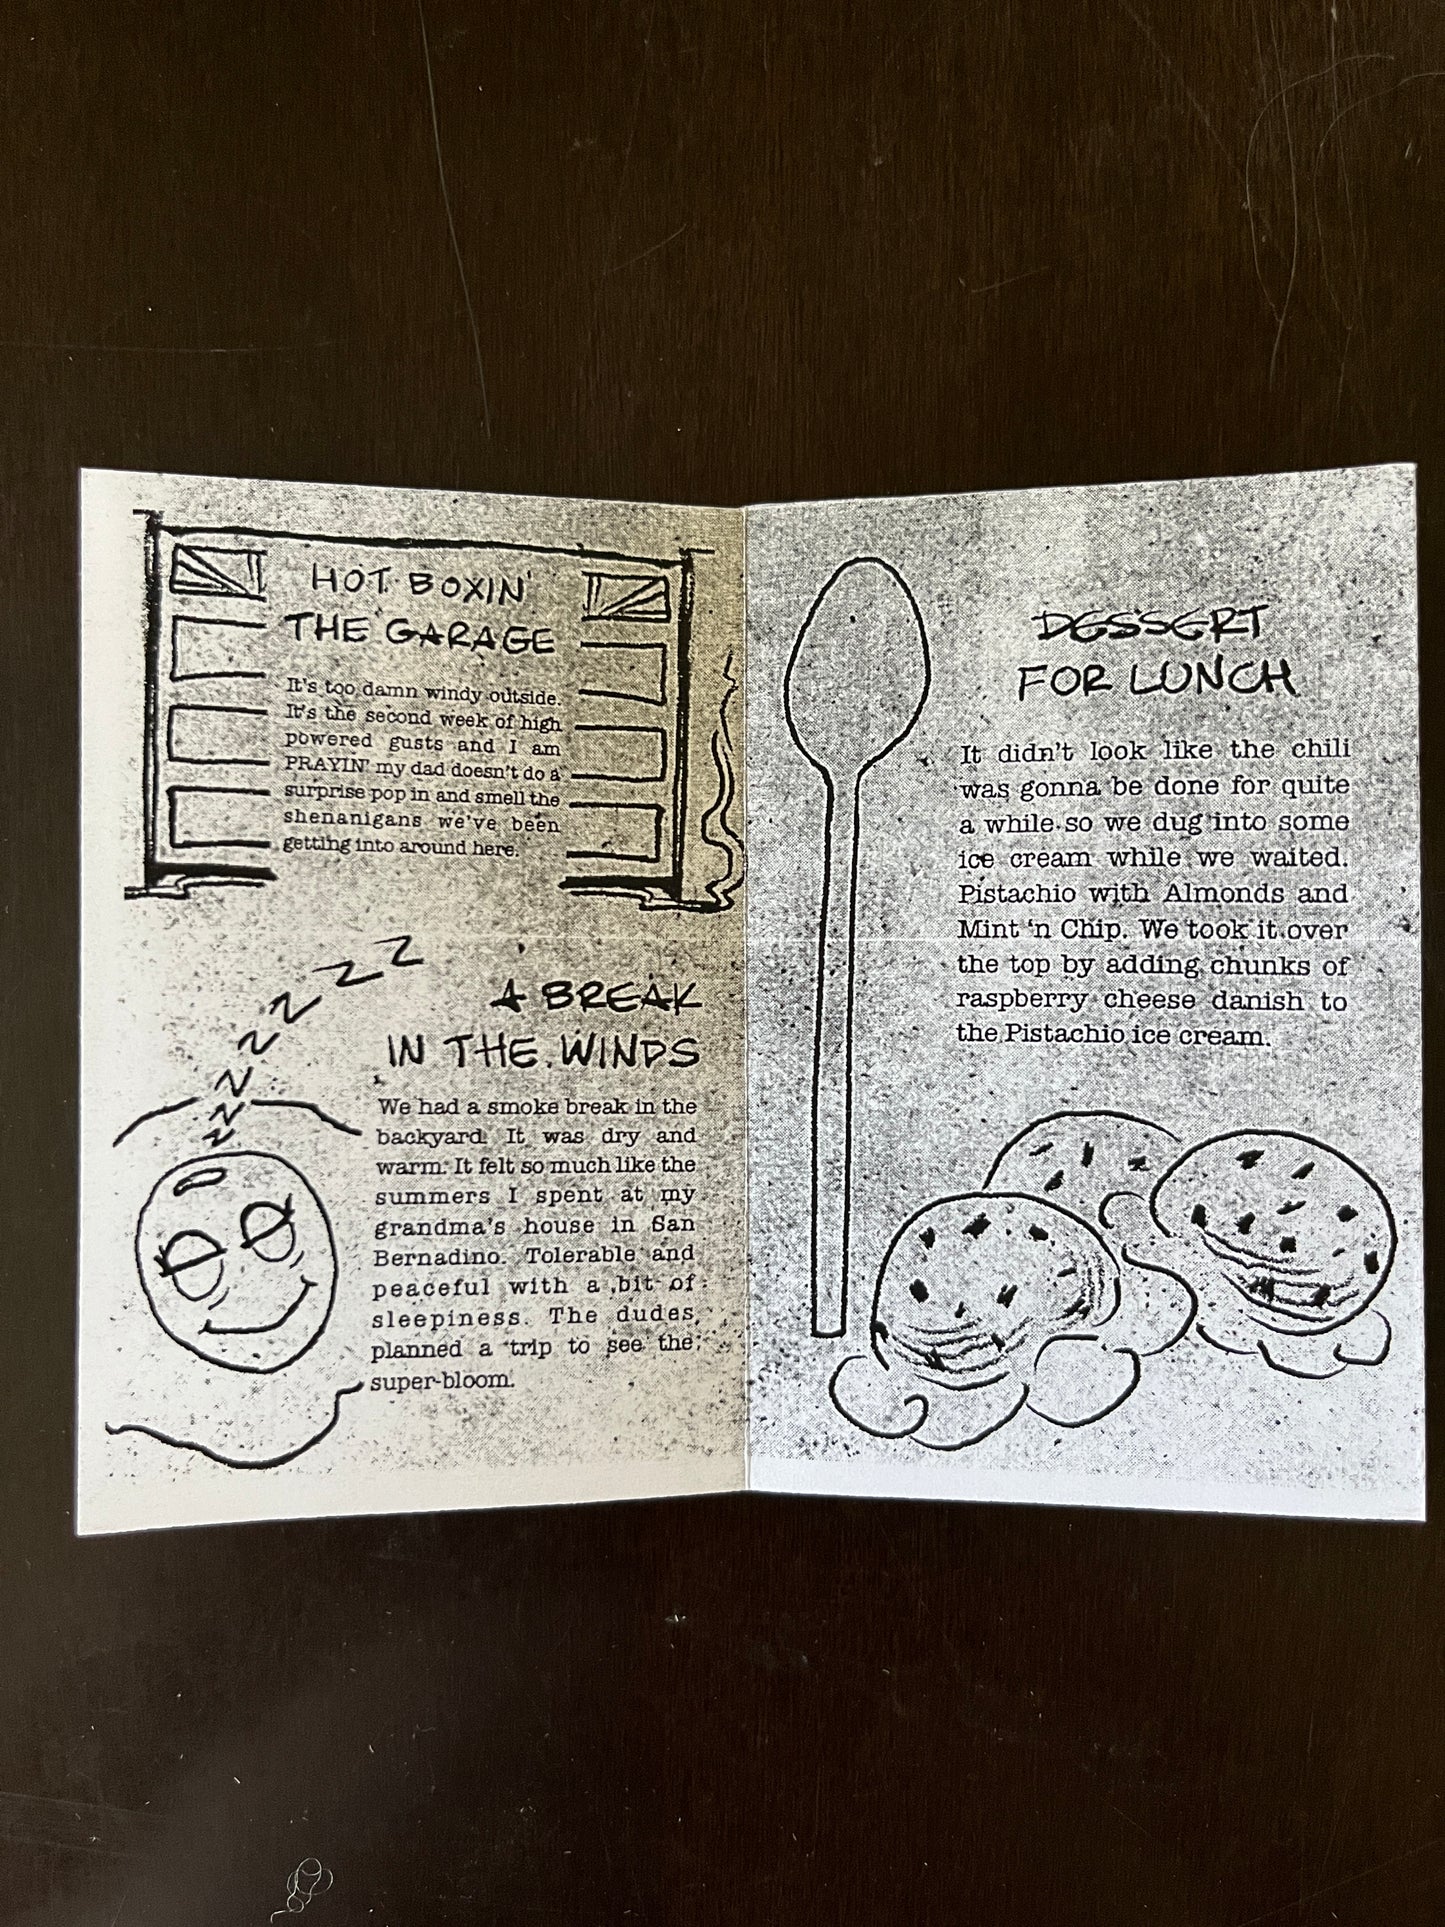 HOT BOXIN'
THE GARAGE
It's too damn windy outside.
It's the second week of high
powered gusts and I am
PRAYIN' my dad doesn't do a
surprise pop in and smell the
shenanigans we've been
getting into around here.
Z Z Z Z Z Z Z Z
A BREAK
IN THE WINDS
We had a smoke break in the
backyard. It was dry and
warm. It felt so much like the
summers I spent at my
grandma's house in San
Bernadino. Tolerable and
peaceful with a bit of
sleepiness. The dudes
planned a trip to see the
super-bloom.
DESSERT
FOR LUNCH
It didn't look like the chili
was gonna be done for quite
a while so we dug into some
ice cream while we waited.
Pistachio with Almonds and
Mint 'n Chip. We took it over
the top by adding chunks of
raspberry cheese danish to
the Pistachio ice cream.